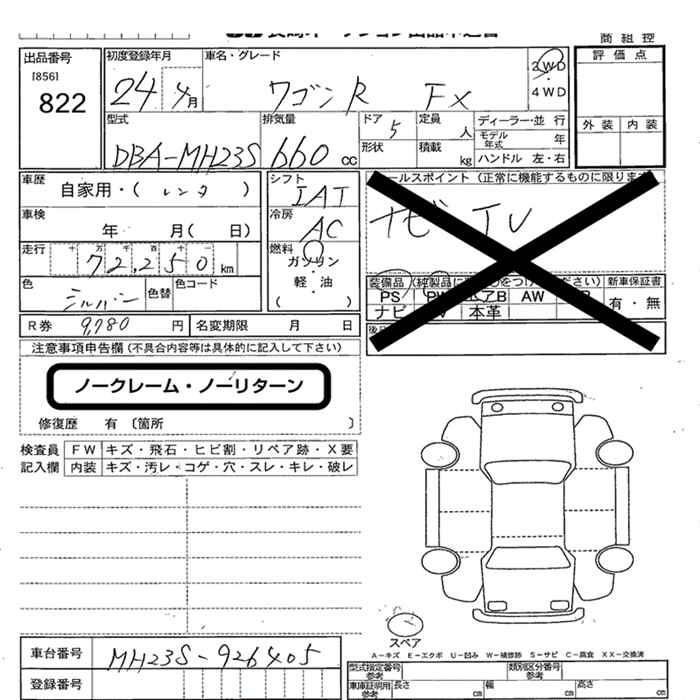 商 組 控
出品番号
[856]
822
初度登録年月
24年4月
車名・グレード
ワゴンR FX
2WD
4WD
評 価 点
型式
DBA-MH23S
排気量
660 cc
ドア 5
形状
定員 人
積載 kg
ディーラー・並 行
モデル年式 年
ハンドル 左・右
外 装 内 装
車歴
自家用・( レンタ )
シフト
IAT
セールスポイント (正常に機能するものに限ります
ナビ TV
車検
年 月( 日)
冷房
AC
走行
十 万 千 百 十 一
72,250 km
燃料
ガソリン
・
軽 油
( )
色
シルバー
色替
色コード
装備品
新車保証書
PS PW エアB AW
ナビ 本革
有・無
R券 9,780 円
名変期限 月 日
注意事項申告欄 (不具合内容等は具体的に記入して下さい)
ノークレーム・ノーリターン
修復歴 有 〔箇所 〕
検査員 FW キズ・飛石・ヒビ割・リペア跡・X要
記入欄 内装 キズ・汚レ・コゲ・穴・スレ・キレ・破レ
スペア
A-キズ E-エクボ U-凹み W-補修跡 S-サビ C-腐食 XX-交換済
車台番号 MH23S-926405
登録番号
型式指定番号 参考
類別区分番号 参考
車庫証明用 参考
長さ cm
幅 cm
高さ cm